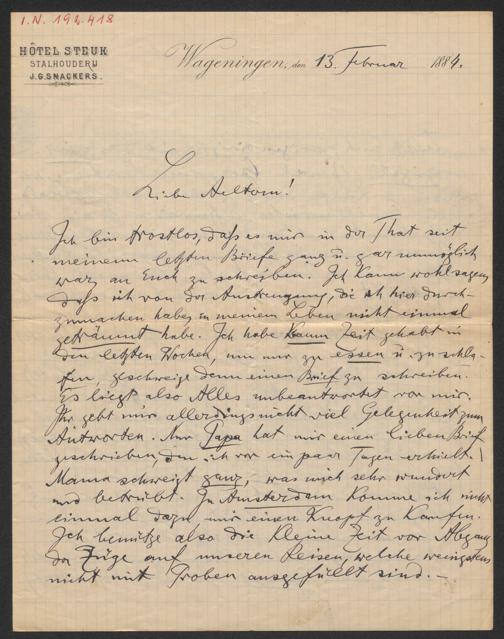 I.N. 192.418
HÔTEL STEUK
STALHOUDERIJ
J.G. SNACKERS.
Wageningen, den 13. Februar 1884.
Liebe Aeltern!
Ich bin trostlos, daß es mir in der That seit
meinem letzten Briefe ganz u. gar unmöglich
war, an Euch zu schreiben. Ich kann wohl sagen
daß ich von der Anstrengung, die ich hier durch-
zumachen habe, in meinem Leben nicht einmal
geträumt habe. Ich habe kaum Zeit gehabt in
den letzten Wochen, um nur zu essen u. zu schla-
fen, geschweige denn einen Brief zu schreiben.
Es liegt also Alles unbeantwortet vor mir.
Ihr gebt mir allerdings nicht viel Gelegenheit zum
Antworten. Nur Papa hat mir einen lieben Brief
geschrieben, den ich vor ein paar Tagen erhielt.
Mama schweigt ganz, was mich sehr wundert
und betrübt. In Amsterdam komme ich nicht
einmal dazu, mir einen Knopf zu kaufen.
Ich benütze also die kleine Zeit vor Abgang
der Züge auf unseren Reisen, welche wenigstens
nicht mit Proben ausgefüllt sind. –